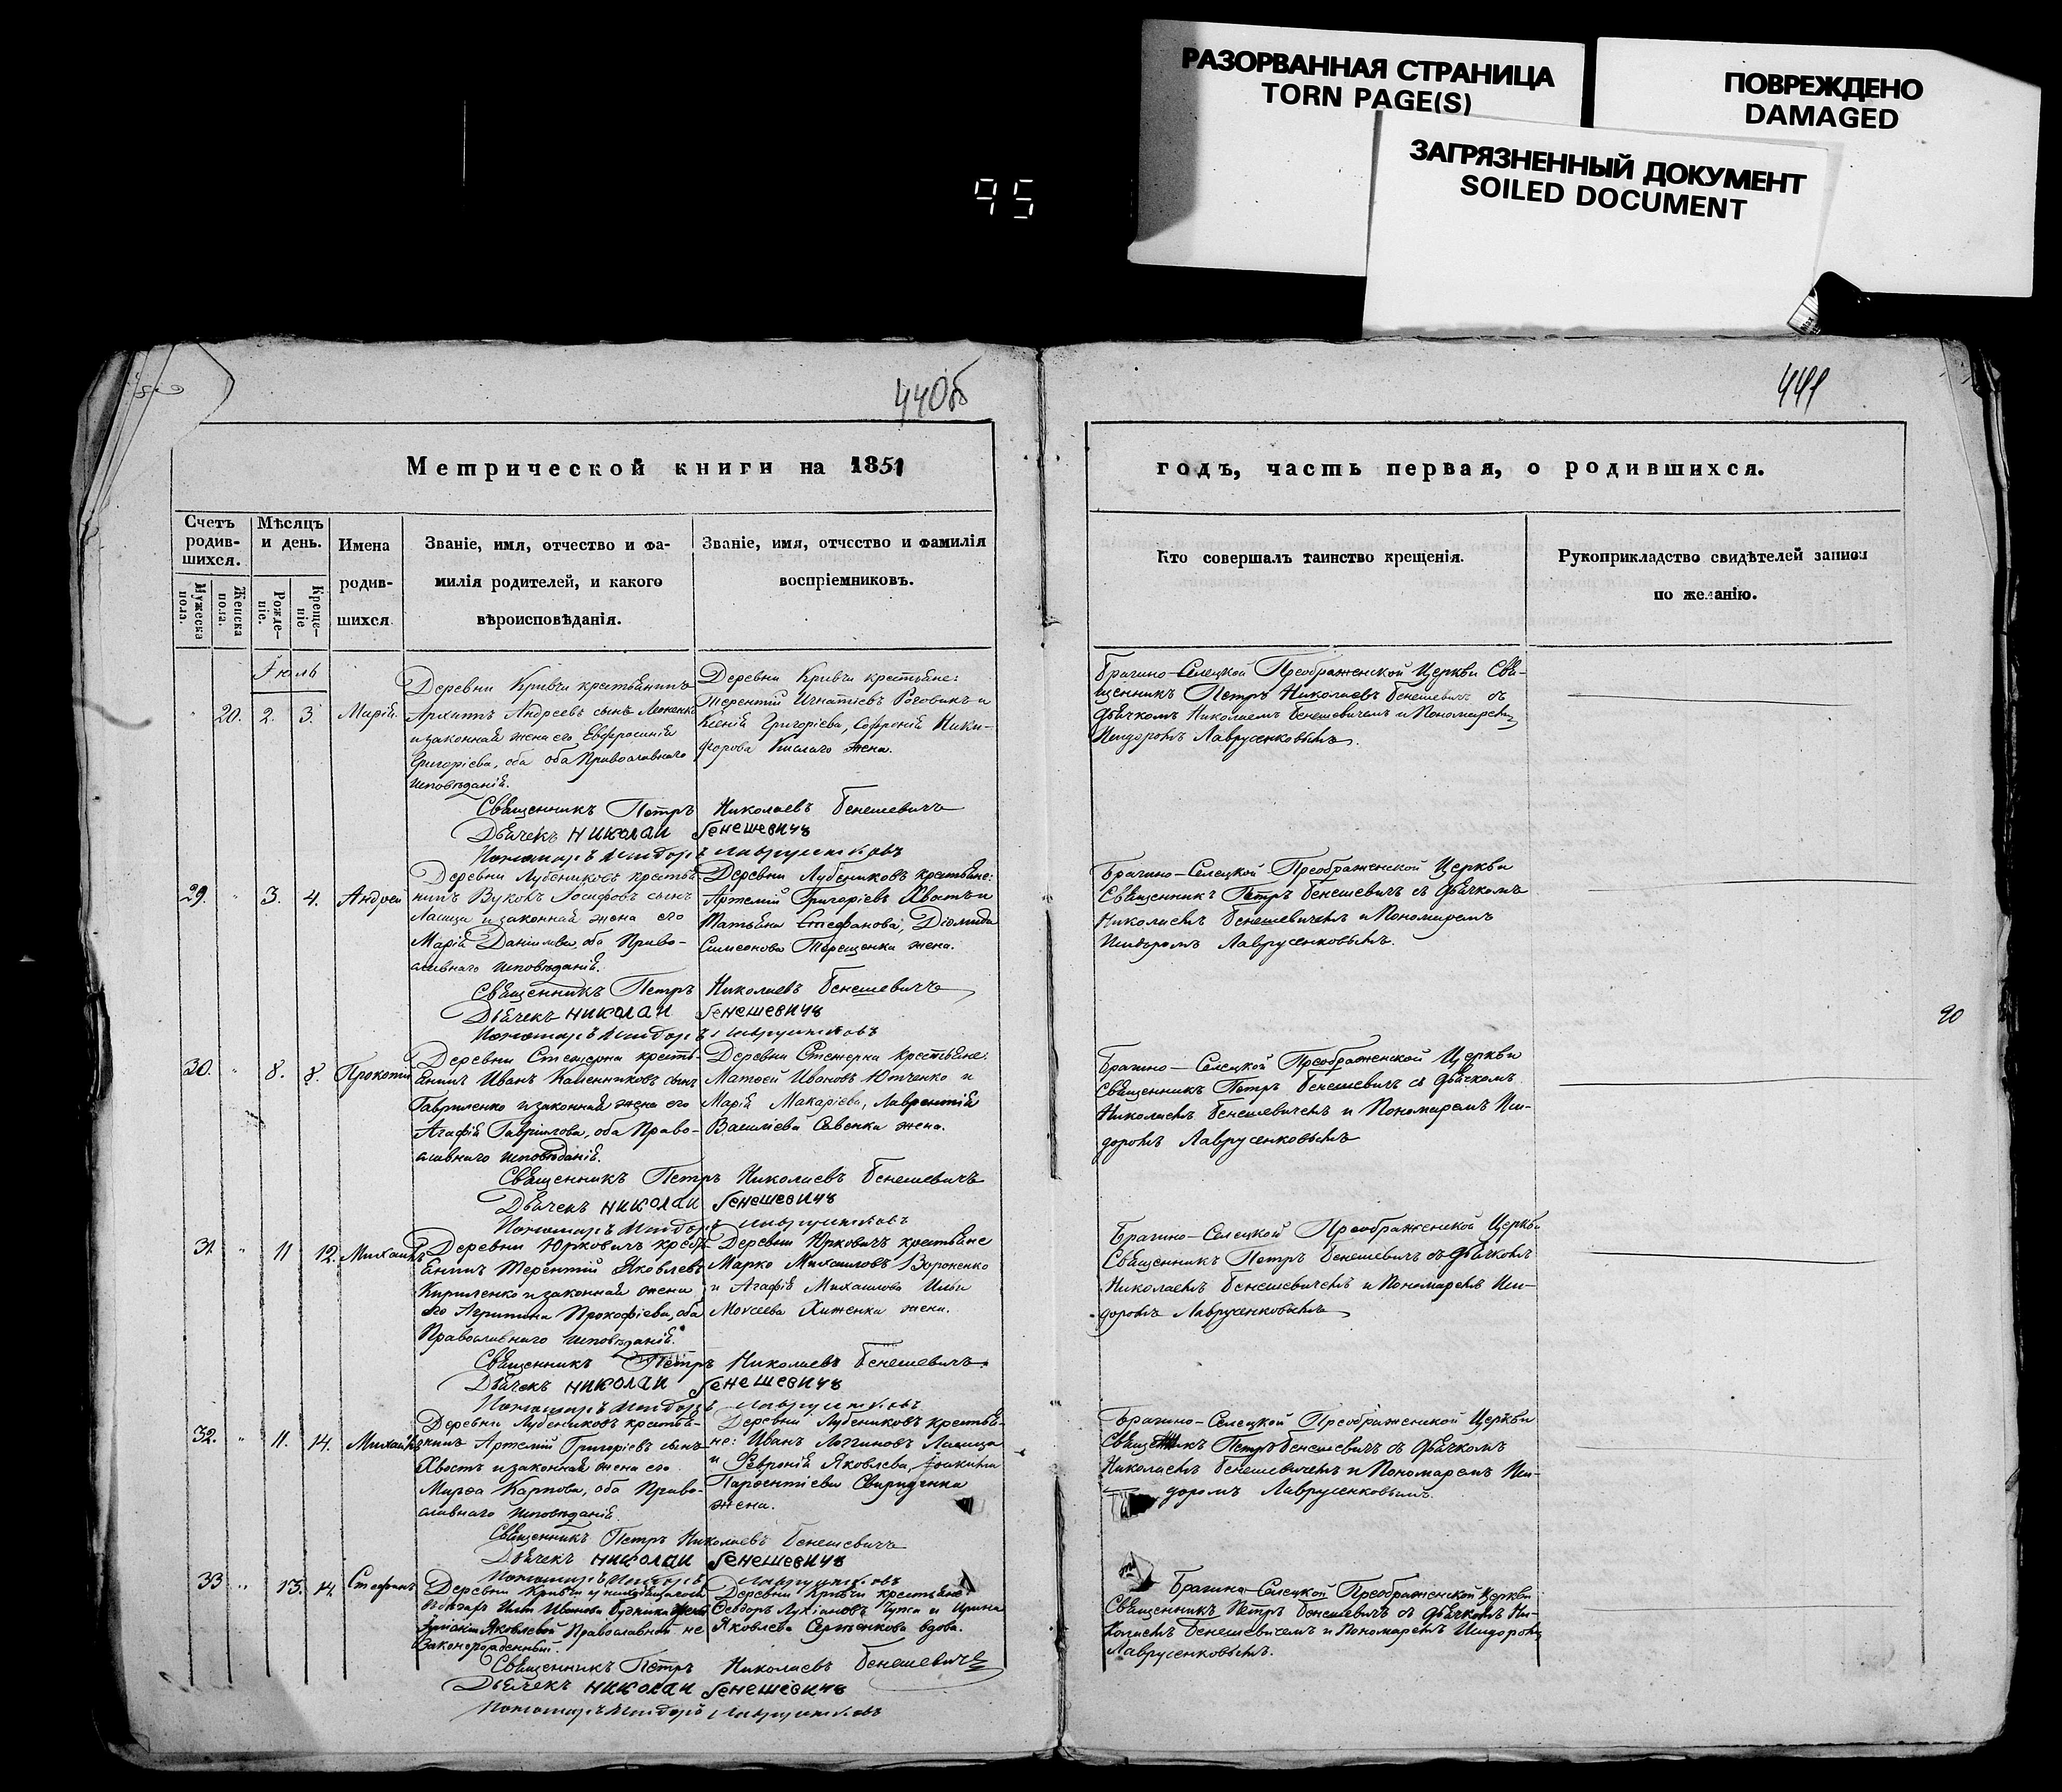 РАЗОРВАННАЯ СТРАНИЦА
TORN PAGE(S)
ПОВРЕЖДЕНО
DAMAGED
ЗАГРЯЗНЕННЫЙ ДОКУМЕНТ
SOILED DOCUMENT
95
440об
441
Метрической книги на 1851
годъ, часть первая, о родившихся.
Счетъ родив-шихся.
Мужеска пола.
Женска пола.
Мѣсяцъ и день.
Рожде-ніе.
Креще-ніе
Имена
родив-
шихся
Званіе, имя, отчество и фа-
милія родителей, и какого
вѣроисповѣданія.
Званіе, имя, отчество и фамилія
воспріемниковъ.
Кто совершалъ таинство крещенія.
Рукоприкладство свидѣтелей записи
по желанію.
Іюль
20. 2. 3. Марія.
Деревни Кривчи крестьянинъ
Архипъ Андреевъ сынъ
и законная жена его Евфросинія
Григорієва, оба Православнаго
исповѣданія.
Деревни Кривчи крестьяне:
Терентій Игнатіевъ Роговикъ и
Ксенія Григорієва, Софронія Ники-
форова Кислаго жена.
Брагино-Селецкой Преображенской Церкви Свя-
щенникъ Петръ Николаевъ Бенешевичъ съ
Дьячкомъ Николаемъ Бенешевичемъ и Пономаремъ
Исидоромъ Лаврусенковымъ.
Священникъ Петръ Николаевъ Бенешевичъ
Дьячекъ Николай Бенешевичъ
Пономарь Исидоръ
29. " 3. 4. Андрей
Деревни Лубениковъ крестья-
нинъ Вуколъ Іосифовъ сынъ
Ласица и законная жена его
Марія Даніилова, оба Право-
славнаго исповѣданія.
Деревни Лубениковъ крестьяне:
Артемій Григорієвъ Хвостъ и
Татьяна Стефанова, Діомида
Симеонова Терещенка жена.
Брагино-Селецкой Преображенской Церкви
Священникъ Петръ Бенешевичъ съ Дьячкомъ
Николаемъ Бенешевичемъ и Пономаремъ
Исидоромъ Лаврусенковымъ.
Священникъ Петръ Николаевъ Бенешевичъ
Дьячекъ Николай Бенешевичъ
Пономарь Исидоръ
90
30. " 8. 8. Прокопій
Деревни Стежерна кресть-
янинъ Иванъ сынъ
Гавриленко и законная жена его
Агафія Гавріилова, оба Право-
славнаго исповѣданія.
Деревни Стежерна крестьяне:
Матѳей Ивановъ Ютченко и
Марія Макарієва, Лаврентія
Василієва Савенка жена.
Брагино-Селецкой Преображенской Церкви
Священникъ Петръ Бенешевичъ съ Дьячкомъ
Николаемъ Бенешевичемъ и Пономаремъ Иси-
доромъ Лаврусенковымъ
Священникъ Петръ Николаевъ Бенешевичъ
Дьячекъ Николай Бенешевичъ
Пономарь Исидоръ
31. " 11 12. Михаилъ
Деревни Юрковичъ кресть-
янинъ Терентій Яковлевъ
Кириленко и законная жена
его Агрипина Прокофієва, оба
Православнаго исповѣданія.
Деревни Юрковичъ крестьяне
Марко Михаиловъ Вороненко
и Агафія Михаилова Ильи
Моисеева Хиженка жена.
Брагино-Селецкой Преображенской Церкви
Священникъ Петръ Бенешевичъ съ Дьячкомъ
Николаемъ Бенешевичемъ и Пономаремъ Иси-
доромъ Лаврусенковымъ
Священникъ Петръ Николаевъ Бенешевичъ.
Дьячекъ Николай Бенешевичъ
Пономарь Исидоръ
32. " 11. 14. Михаилъ
Деревни Лубениковъ крестья-
нинъ Артемій Григорієвъ сынъ
Хвостъ и законная жена его
Марѳа Карпова, оба Право-
славнаго исповѣданія.
Деревни Лубениковъ крестья-
не: Иванъ Логиновъ Ласица
и Февронія Яковлева, Іоакима
Парѳентієва Свириденка
жена.
Брагино-Селецкой Преображенской Церкви
Священникъ Петръ Бенешевичъ съ Дьячкомъ
Николаемъ Бенешевичемъ и Пономаремъ Иси-
доромъ Лаврусенковымъ.
Священникъ Петръ Николаевъ Бенешевичъ
Дьячекъ Николай Бенешевичъ
Пономарь Исидоръ
33 " 13. 14. Стефанъ
Деревни Кривчи
Ильи Иванова Будника
Яковлевой Православной не
законорожденный.
Деревни Кривчи крестьяне:
Ѳеодоръ Лукіановъ и Ирина
Яковлева вдова.
Брагино-Селецкой Преображенской Церкви
Священникъ Петръ Бенешевичъ съ Дьячкомъ Ни-
колаемъ Бенешевичемъ и Пономаремъ Исидоромъ
Лаврусенковымъ.
Священникъ Петръ Николаевъ Бенешевичъ
Дьячекъ Николай Бенешевичъ
Пономарь Исидоръ